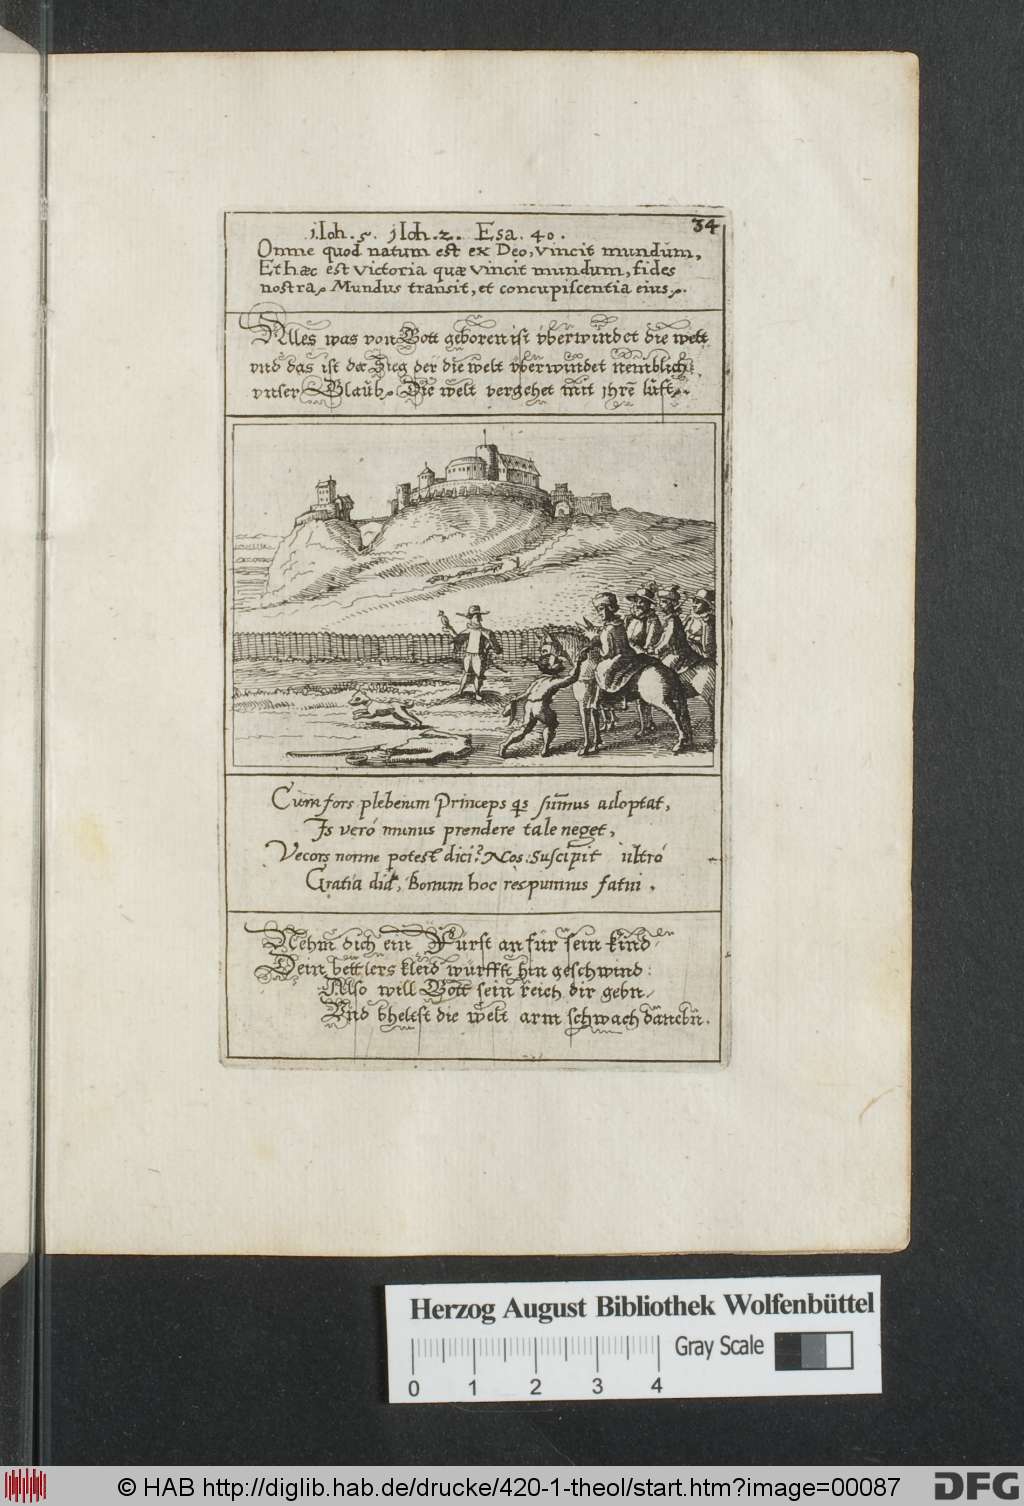 34
1. Ioh. 5. 1 Ioh. 2. Esa. 40.
Omne quod natum est ex Deo, vincit mundum,
Et hæc est victoria quæ vincit mundum, fides
nostra. Mundus transit, et concupiscentia eius.
Alles was von Gott geboren ist vberwindet die welt
vnd das ist der Sieg der die welt vberwindet nemblich
vnser Glaub. Die welt vergehet mit jhrē lust.
Cum fors plebeium Princeps qs sum̄us adoptat,
Is veró munus prendere tale neget,
Vecors nonne potest dici? Nos suscipit ultró
Gratia , Bonum hoc respuimus fatui.
Nehm dich ein Fürst an für sein kind
Dein bettlers kleid würffst hin geschwind:
Also will Gott sein reich dir gebn
Vnd bheltst die welt arm schwach danebn.
Herzog August Bibliothek Wolfenbüttel
Gray Scale
0 1 2 3 4
© HAB http://diglib.hab.de/drucke/420-1-theol/start.htm?image=00087
DFG